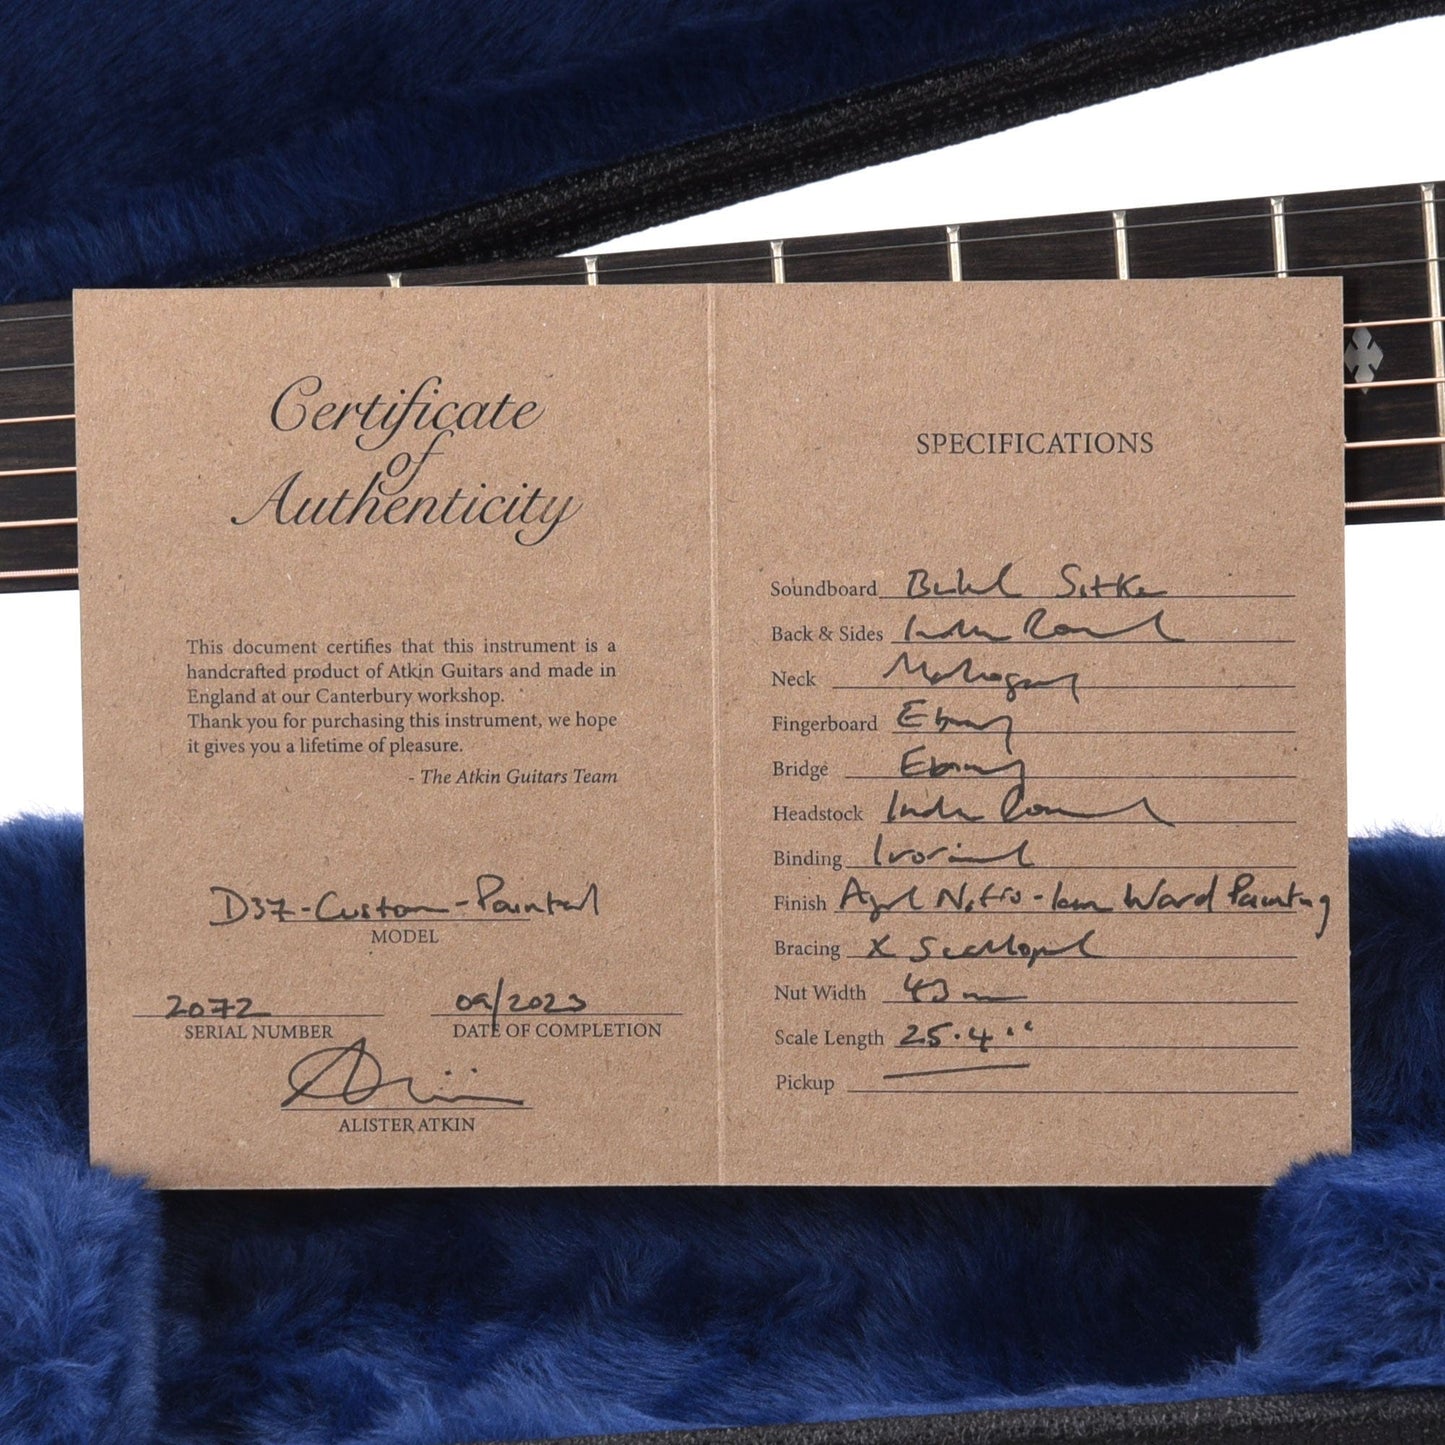 Certificate
of
Authenticity
This document certifies that this instrument is a
handcrafted product of Atkin Guitars and made in
England at our Canterbury workshop.
Thank you for purchasing this instrument, we hope
it gives you a lifetime of pleasure.
- The Atkin Guitars Team
D37-Custom-Painted
MODEL
2072
SERIAL NUMBER
09/2023
DATE OF COMPLETION
ALISTER ATKIN
SPECIFICATIONS
Soundboard Baked Sitka
Back & Sides Indian Rosewood
Neck Mahogany
Fingerboard Ebony
Bridge Ebony
Headstock Indian Rosewood
Binding Ivoroid
Finish Aged Nitro - Ward Painting
Bracing X Scalloped
Nut Width 43mm
Scale Length 25.4"
Pickup —